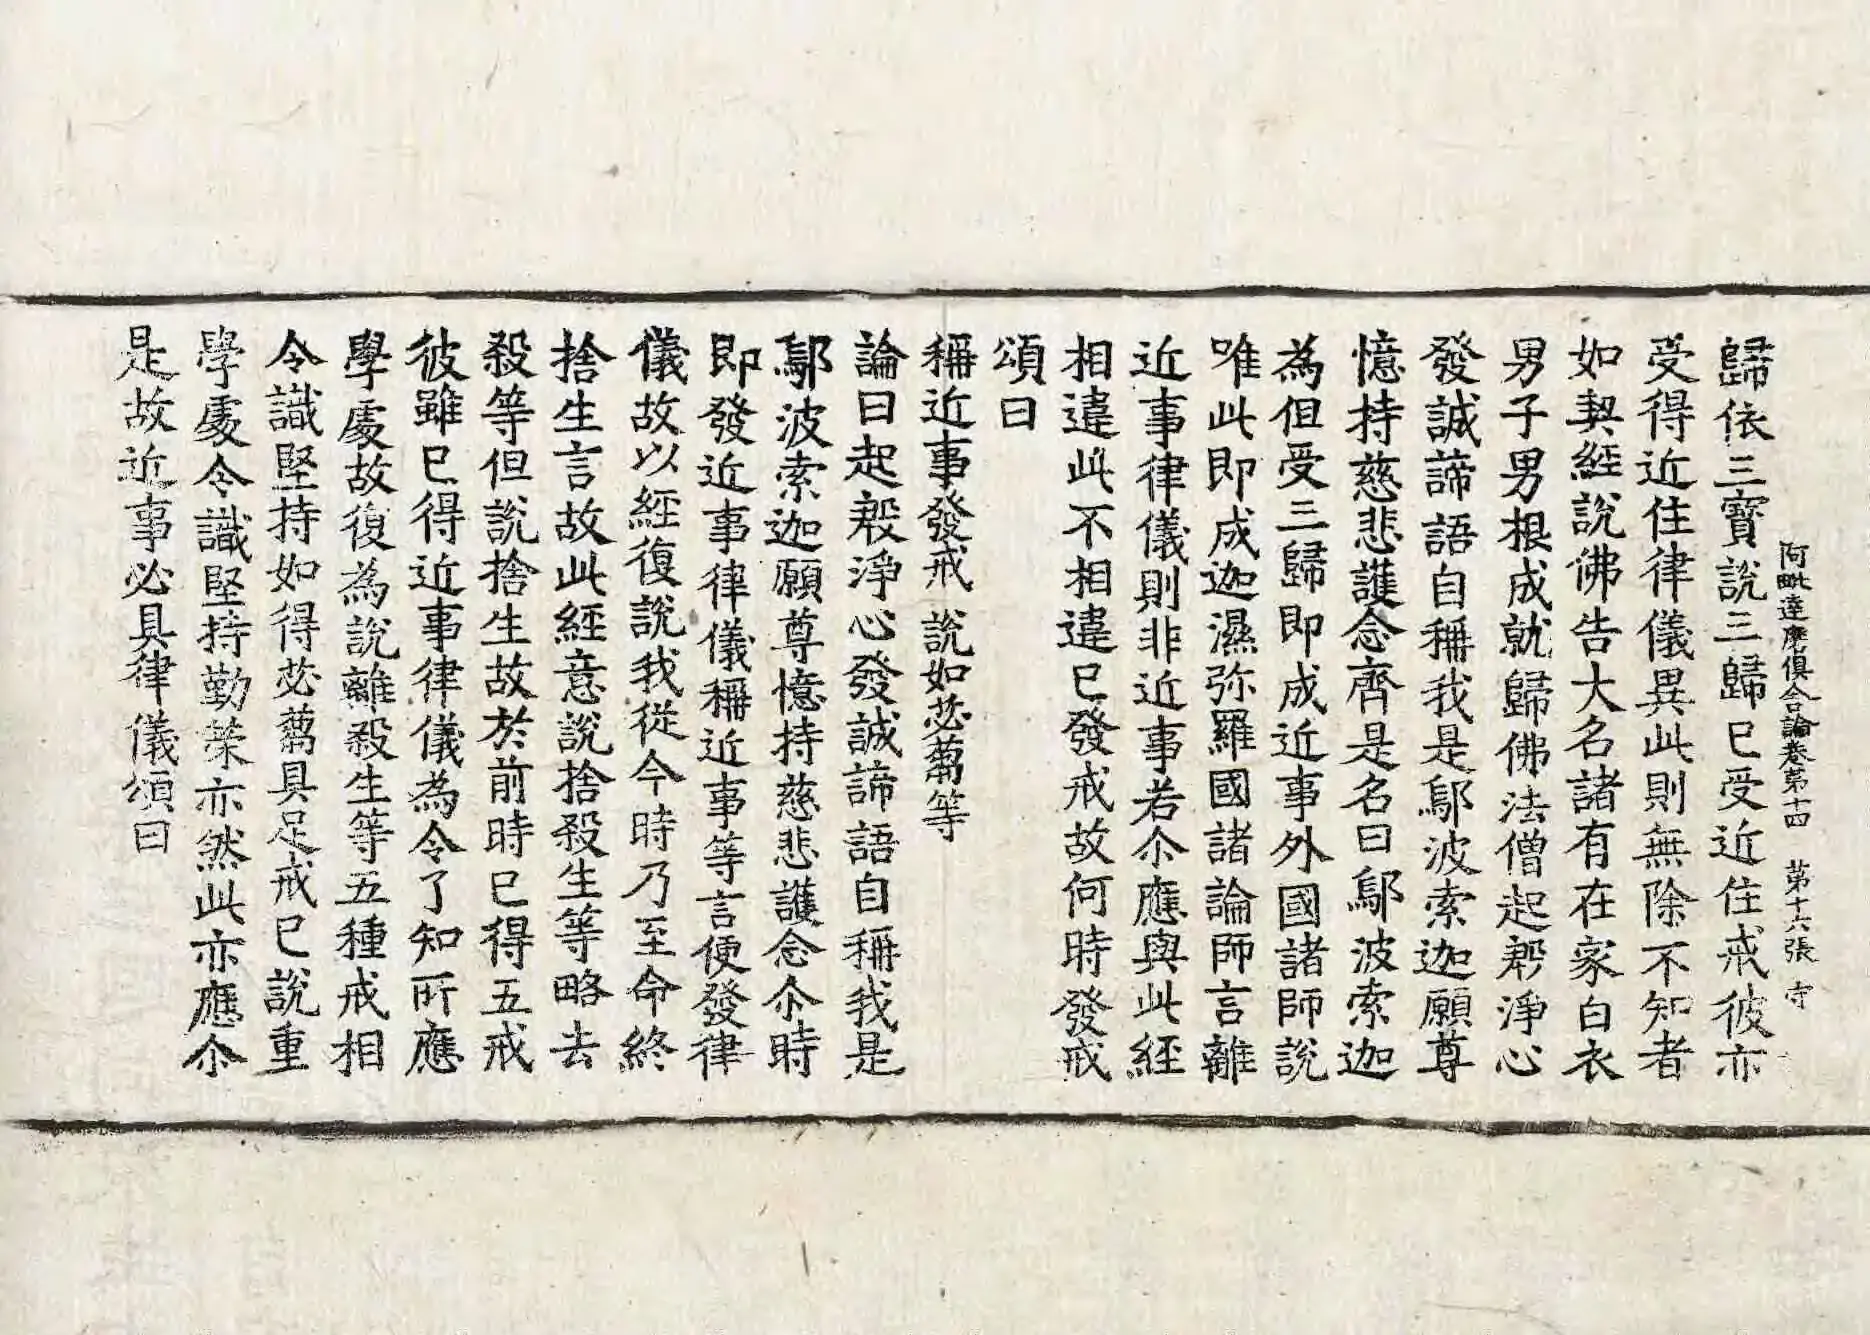 阿毗達磨俱舍論卷第十四　第十六張　寺
歸依三寶說三歸已受近住戒彼亦
受得近住律儀異此則無除不知者
如契經說佛告大名諸有在家白衣
男子男根成就歸佛法僧起殷淨心
發誠諦語自稱我是鄔波索迦願尊
憶持慈悲護念齊是名曰鄔波索迦
為但受三歸即成近事外國諸師說
唯此即成迦濕弥羅國諸論師言離
近事律儀則非近事若尒應與此經
相違此不相違已發戒故何時發戒
頌曰
稱近事發戒　說如苾蒭等
論曰起殷淨心發誠諦語自稱我是
鄔波索迦願尊憶持慈悲護念尒時
即發近事律儀稱近事等言便發律
儀故以經復說我從今時乃至命終
捨生言故此經意說捨殺生等略去
殺等但說捨生故於前時已得五戒
彼雖已得近事律儀為令了知所應
學處故復為說離殺生等五種戒相
令識堅持如得苾蒭具足戒已說重
學處令識堅持勤策亦然此亦應尒
是故近事必具律儀頌曰